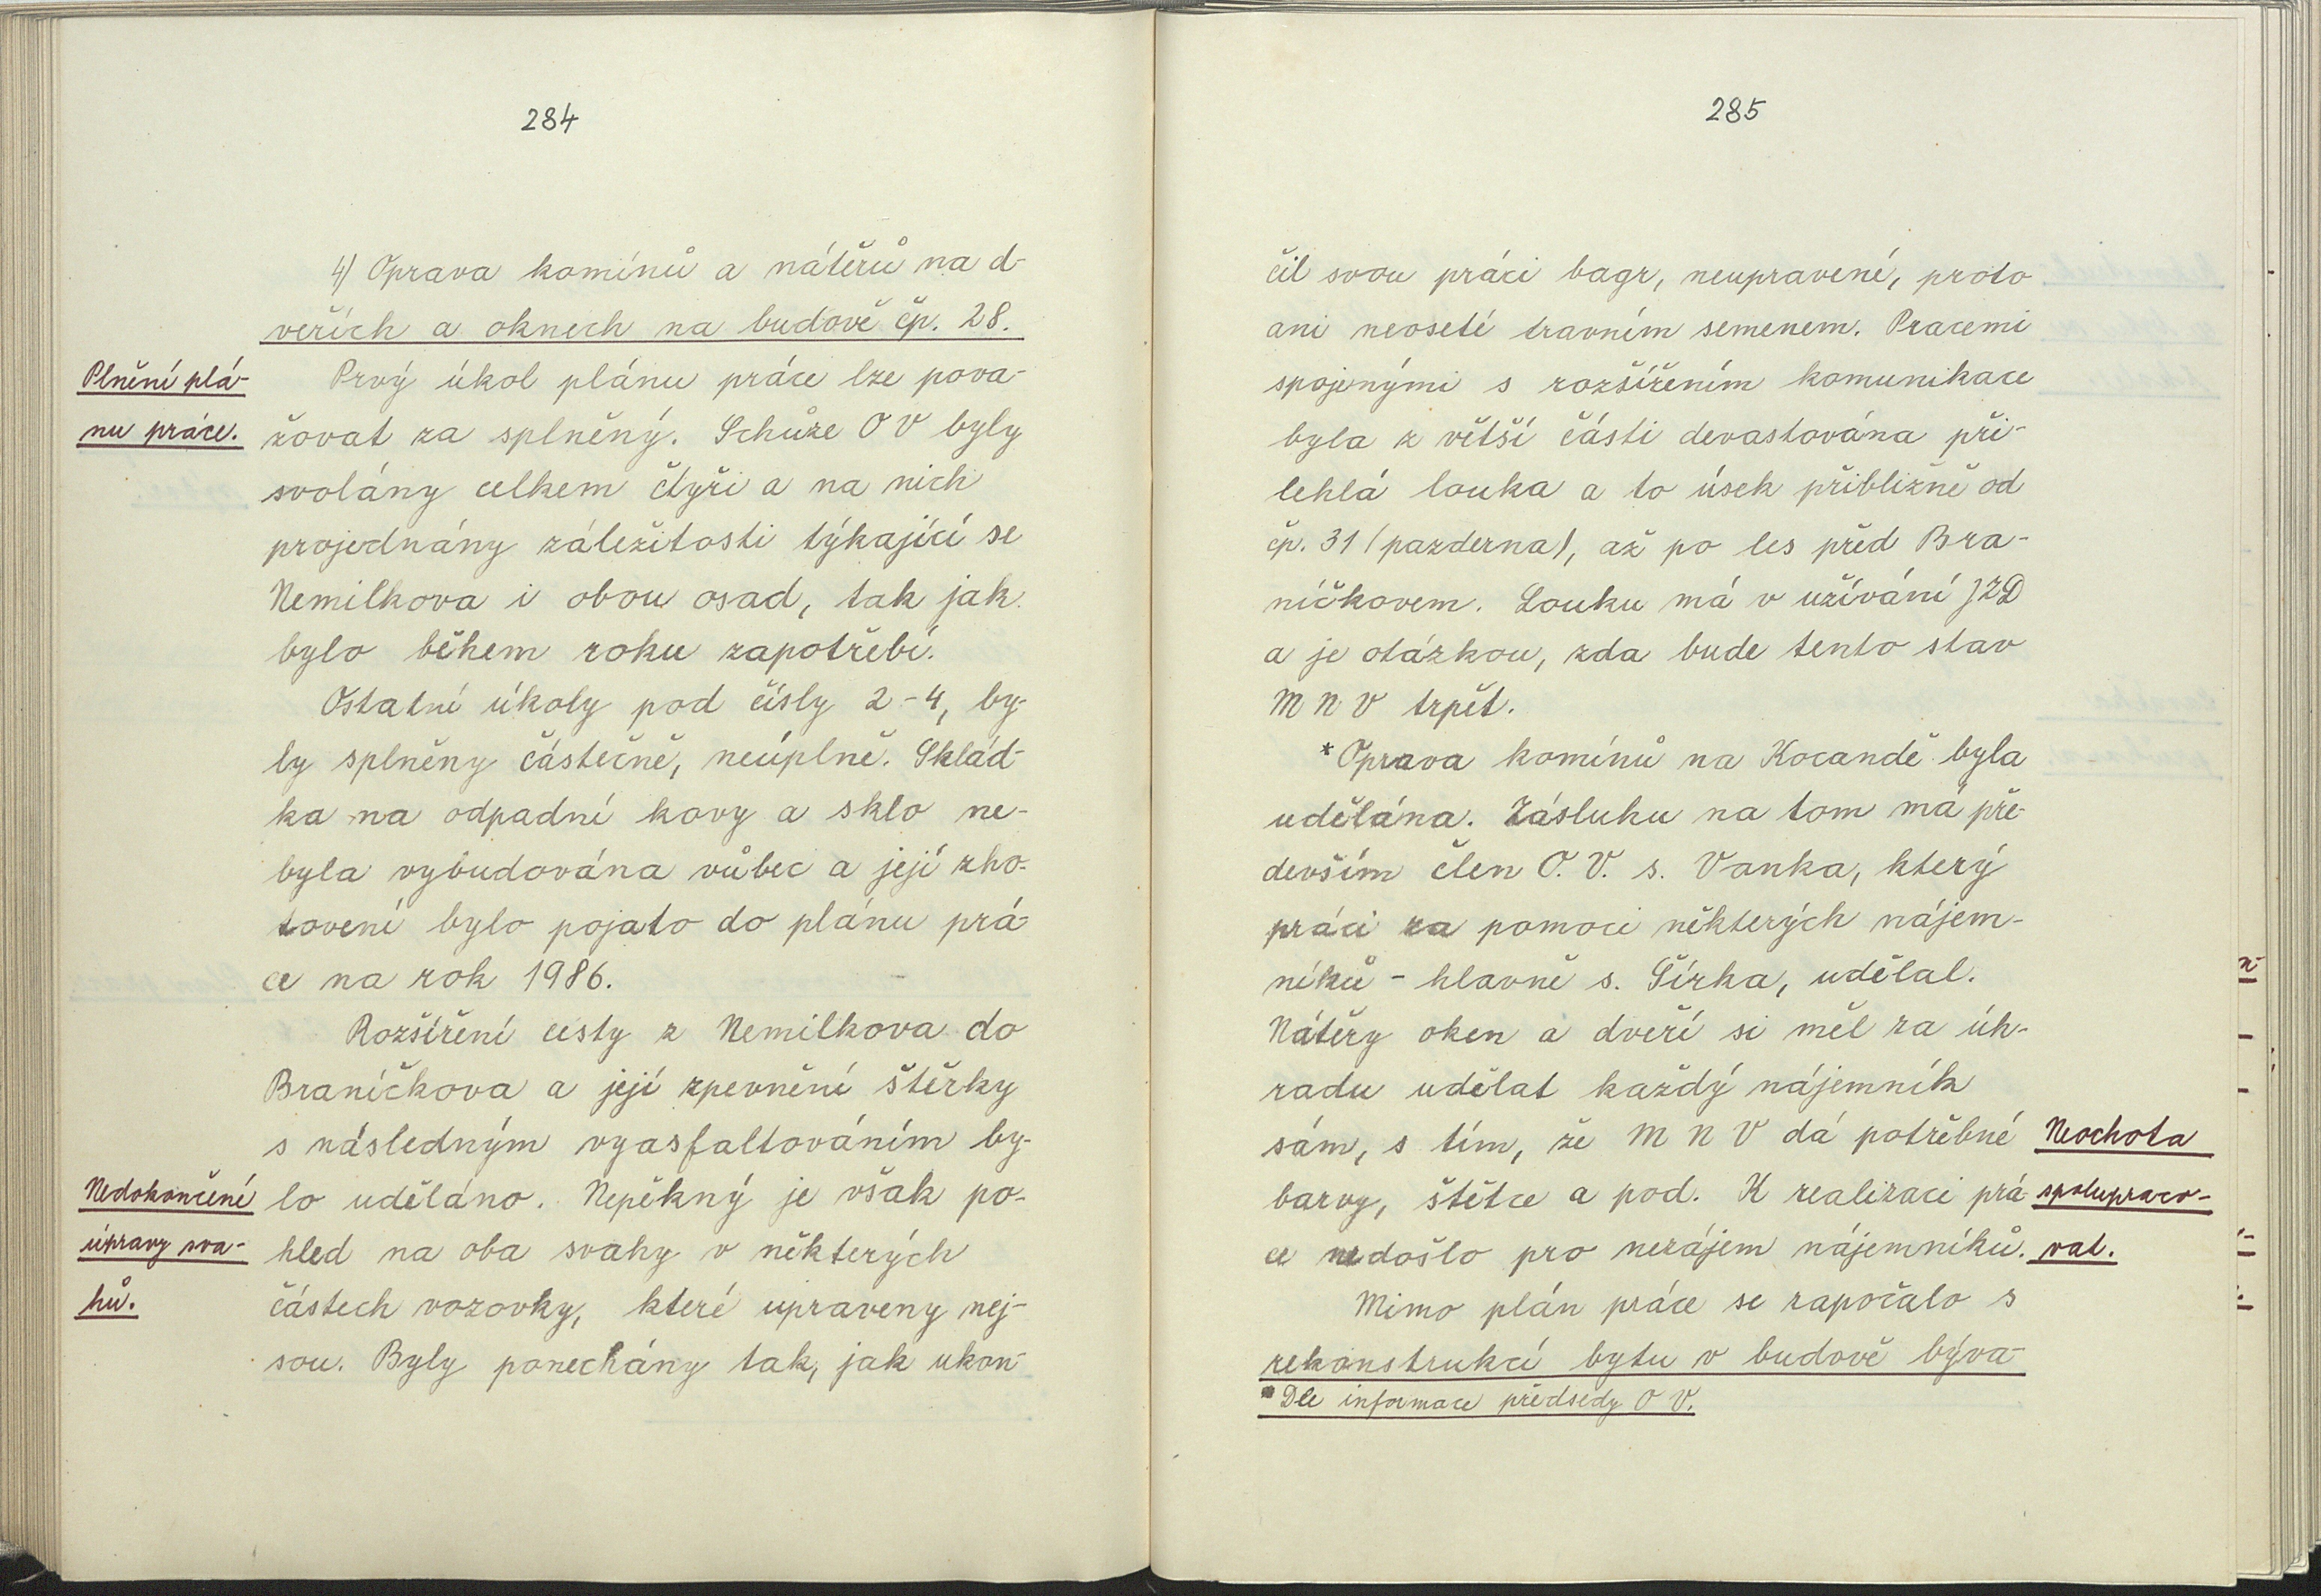 284
4) Oprava komínů a nátěrů na d-
veřích a oknech na budově čp. 28.
Plnění plá-
nu práce.
Prvý úkol plánu práce lze pova-
žovat za splněný. Schůze OV byly
svolány celkem čtyři a na nich
projednány záležitosti týkající se
Nemilkova i obou osad, tak jak
bylo během roku zapotřebí.
Ostatní úkoly pod čísly 2-4, by-
ly splněny částečně, neúplně. Sklád-
ka na odpadní kovy a sklo ne-
byla vybudována vůbec a její zho-
tovení bylo pojato do plánu prá-
ce na rok 1986.
Rozšíření cesty z Nemilkova do
Braníčkova a její zpevnění štěrky
s následným vyasfaltováním by-
Nedokončení
úpravy sva-
hů.
lo uděláno. Nepěkný je však po-
hled na oba svahy v některých
částech vozovky, které upraveny nej-
sou. Byly ponechány tak, jak ukon-
285
čil svou práci bagr, neupravené, proto
ani neoseté travním semenem. Pracemi
spojenými s rozšířením komunikace
byla z větší části devastována při-
lehlá louka a to úsek přibližně od
čp. 31 (pazderna), až po les před Bra-
níčkovem. Louku má v užívání JZD
a je otázkou, zda bude tento stav
MNV trpět.
*Oprava komínů na Kocandě byla
udělána. Zásluhu na tom má pře-
devším člen O.V. s. Vanka, který
práci za pomoci některých nájem-
níků - hlavně s. Šírka, udělal.
Nátěry oken a dveří si měl za úh-
radu udělat každý nájemník
sám, s tím, že MNV dá potřebné
barvy, štětce a pod. K realizaci prá-
ce nedošlo pro nezájem nájemníků.
Neochota
spolupraco-
vat.
Mimo plán práce se započalo s
rekonstrukcí bytu v budově býva-
*Dle informace předsedy OV.